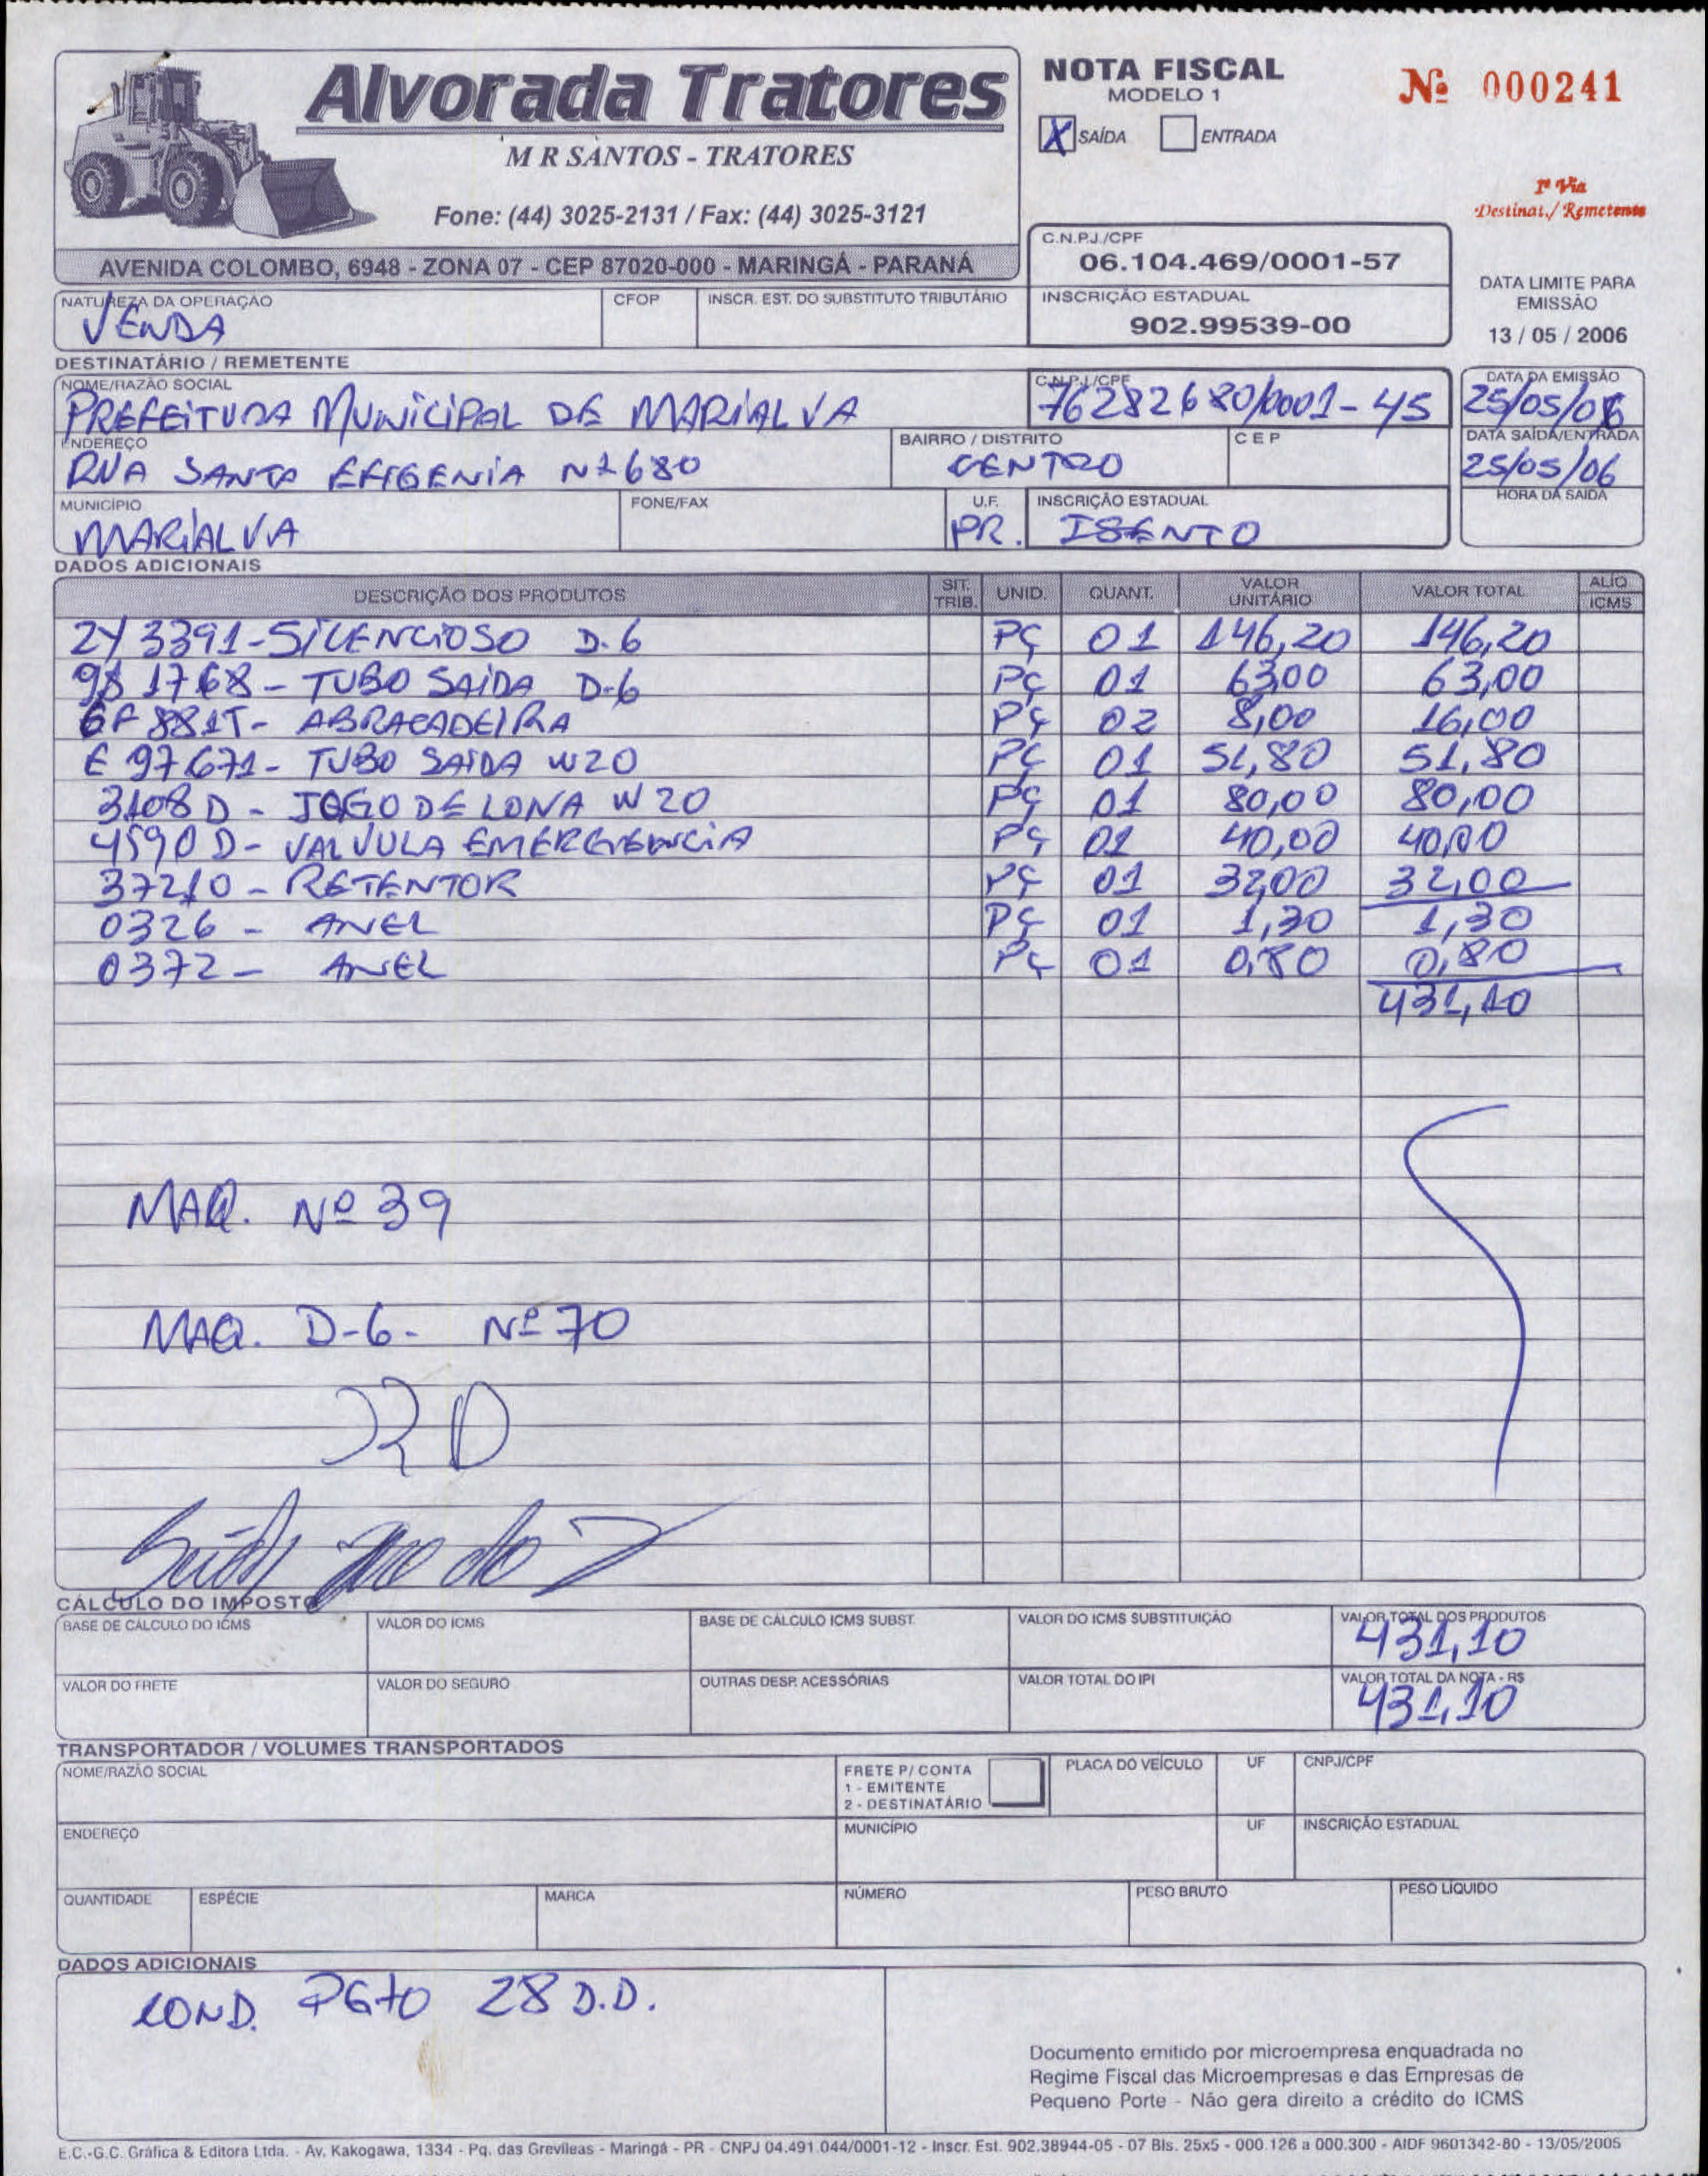 Alvorada Tratores
M R SANTOS - TRATORES
Fone: (44) 3025-2131 / Fax: (44) 3025-3121
AVENIDA COLOMBO, 6948 - ZONA 07 - CEP 87020-000 - MARINGÁ - PARANÁ
NOTA FISCAL
MODELO 1
X SAÍDA ENTRADA
Nº 000241
1ª Via
Destinat./ Remetente
C.N.P.J./CPF
06.104.469/0001-57
INSCRIÇÃO ESTADUAL
902.99539-00
DATA LIMITE PARA
EMISSÃO
13 / 05 / 2006
NATUREZA DA OPERAÇÃO CFOP INSCR. EST. DO SUBSTITUTO TRIBUTÁRIO
VENDA
DESTINATÁRIO / REMETENTE
NOME/RAZÃO SOCIAL C.N.P.J./CPF DATA DA EMISSÃO
PREFEITURA MUNICIPAL DE MARIALVA 76282680/0001-45 25/05/06
ENDEREÇO BAIRRO / DISTRITO C E P DATA SAÍDA/ENTRADA
RUA SANTA EFIGENIA Nº 680 CENTRO 25/05/06
MUNICÍPIO FONE/FAX U.F. INSCRIÇÃO ESTADUAL HORA DA SAÍDA
MARIALVA PR. ISENTO
DADOS ADICIONAIS
DESCRIÇÃO DOS PRODUTOS SIT. TRIB. UNID. QUANT. VALOR UNITÁRIO VALOR TOTAL ALÍQ ICMS
2Y 3391 - SILENCIOSO D.6 PÇ 01 146,20 146,20
9S 1768 - TUBO SAIDA D-6 PÇ 01 63,00 63,00
6F 881T - ABRACADEIRA PÇ 02 8,00 16,00
E 97671 - TUBO SAIDA W20 PÇ 01 51,80 51,80
3108 D - JOGO DE LONA W 20 PÇ 01 80,00 80,00
4590 D - VALVULA EMERGENCIA PÇ 01 40,00 40,00
37210 - RETENTOR PÇ 01 32,00 32,00
0326 - ANEL PÇ 01 1,30 1,30
0372 - ANEL PÇ 01 0,80 0,80
431,10
MAQ. Nº 39
MAQ. D-6- Nº 70
CÁLCULO DO IMPOSTO
BASE DE CÁLCULO DO ICMS VALOR DO ICMS BASE DE CÁLCULO ICMS SUBST. VALOR DO ICMS SUBSTITUIÇÃO VALOR TOTAL DOS PRODUTOS
431,10
VALOR DO FRETE VALOR DO SEGURO OUTRAS DESP. ACESSÓRIAS VALOR TOTAL DO IPI VALOR TOTAL DA NOTA - R$
431,10
TRANSPORTADOR / VOLUMES TRANSPORTADOS
NOME/RAZÃO SOCIAL FRETE P/ CONTA PLACA DO VEÍCULO UF CNPJ/CPF
1 - EMITENTE
2 - DESTINATÁRIO
ENDEREÇO MUNICÍPIO UF INSCRIÇÃO ESTADUAL
QUANTIDADE ESPÉCIE MARCA NÚMERO PESO BRUTO PESO LÍQUIDO
DADOS ADICIONAIS
COND. PGTO 28 D.D.
Documento emitido por microempresa enquadrada no
Regime Fiscal das Microempresas e das Empresas de
Pequeno Porte - Não gera direito a crédito do ICMS
E.C.-G.C. Gráfica & Editora Ltda. - Av. Kakogawa, 1334 - Pq. das Grevíleas - Maringá - PR - CNPJ 04.491.044/0001-12 - Inscr. Est. 902.38944-05 - 07 Bls. 25x5 - 000.126 a 000.300 - AIDF 9601342-80 - 13/05/2005